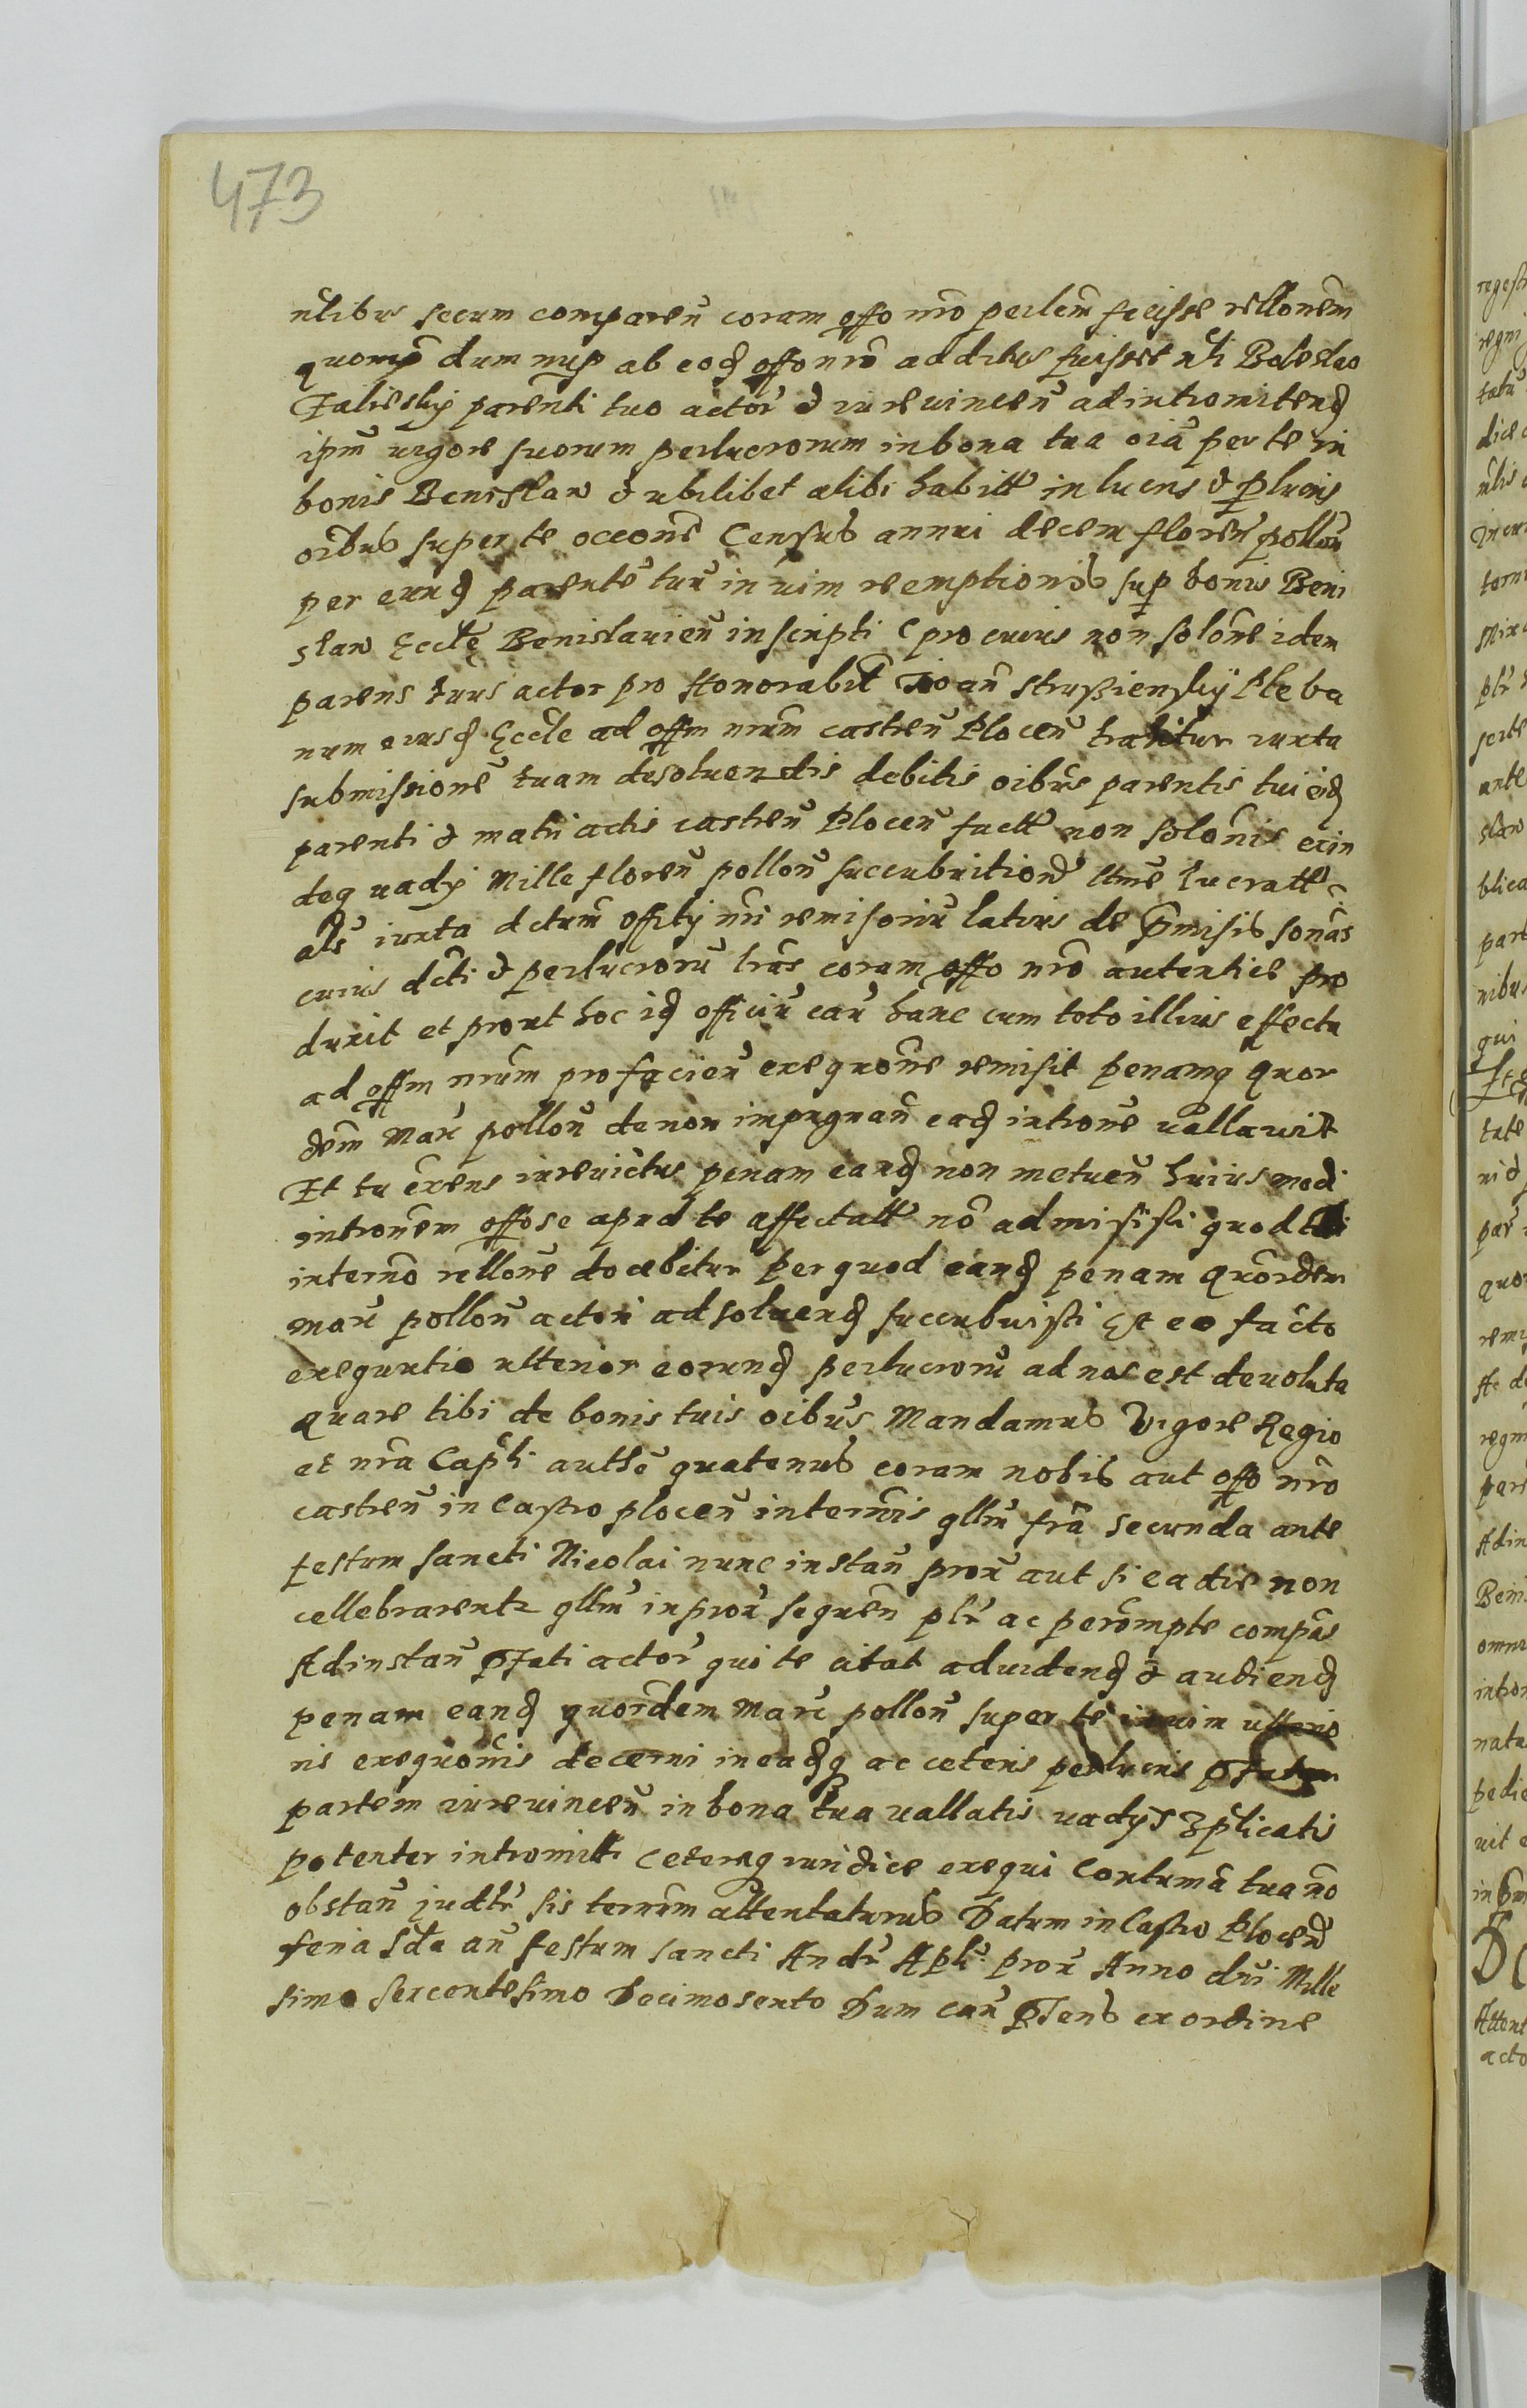 473
nlibus secum comparen̄ coram offo nr̄o perlem̄ fecisse rellonēm
quomō dum nup ab eoḍ offo nr̄o additus fuisset nl̄i Boleslao
Zalieskÿ parenti tuo actor̄ & iure vincen̄ ad intromitenḍ
ipm̄ vigore suorum perlucrorum in bona tua oīa per te in
bonis Benislaw & ubilibet alibi habitt̄ in lucris & ꝑlucris
oībus super te occonē Census annui decem floren̄ pollon̄
per eunḍ parentē tuū in vim reemptionis sup bonis Beni
slaw Eccl̄ę Benislavien̄ inscripti (pro cuius non solone idem
parens tuus actor pro Honorabil̄ Joan̄ Strußienskÿ Pleba
num eiusḍ Eccl̄e ad offm̄ nrūm castren̄ Plocen̄ trahitur iuxta
submissionē tuam desoluendis debitis oībus parentis tui eiḍ
parenti & matri actis castren̄ Plocen̄ factt̄ non solonis exin
deq vadÿ Mille floren̄ pollon̄ succubuition̄ ltmē lucratt̄
als̄ iuxta dctum̄ offity nr̄i remisoriū latius de p̄misis sonās
cuius dcti & perlucrorū lrās coram offo nr̄o autentice pro
duxit et prout hoc iḍ officiū caū hanc cum toto illius effectu
ad offm̄ nrūm pro facien̄ exequone remisit penamq quor
dem̄ Marc̄ pollon̄ de non impugnan̄ eaḍ intronē vallavit
Et tu exens iurevictus penam eanḍ non metuen̄ huiusmodi
intronēm offose apud te affectatt̄ nō admisisti quod tibi
in termō rellone docebitur per quod eanḍ penam quordem
marc̄ pollon̄ actori ad soluenḍ succubuisti Et eo facto
exequutio ulterior eorunḍ perlucrorū ad nos est devoluta
quare tibi de bonis tuis oībus Mandamus Vigore Regio
et nr̄a Capl̄i authē quatenus coram nobis aut offo nr̄o
castren̄ in Castro plocen̄ in termīs qllm̄ frā secunda ante
festum sancti Nicolai nunc instan̄ prox̄ aut si ea die non
cellebrarentr qllm̄ in prox̄ sequen̄ pl̄r ac perompte compās
Ad instan̄ ꝑfati actor̄ qui te citat ad videnḍ & audienḍ
penam eanḍ quordem marc̄ pollon̄ super te in vim ulterio
ris exequonis decerni in eaḍq ac ceteris perlucris
partem iurevincen̄ in bona tua vallatis vadÿs 3plicatis
potenter intromitti ceteraq iuridice exequi Contumā tua nō
obstan̄ judtr̄ sis termīm attentaturus Datum in Castro Plocen̄
feria Sd̄a an̄ festum sancti Andr̄ Apl̄i prox̄ Anno dn̄i Mille
simo sexcentesimo Decimosexto Dum cau̅ ꝑsens ex ordine